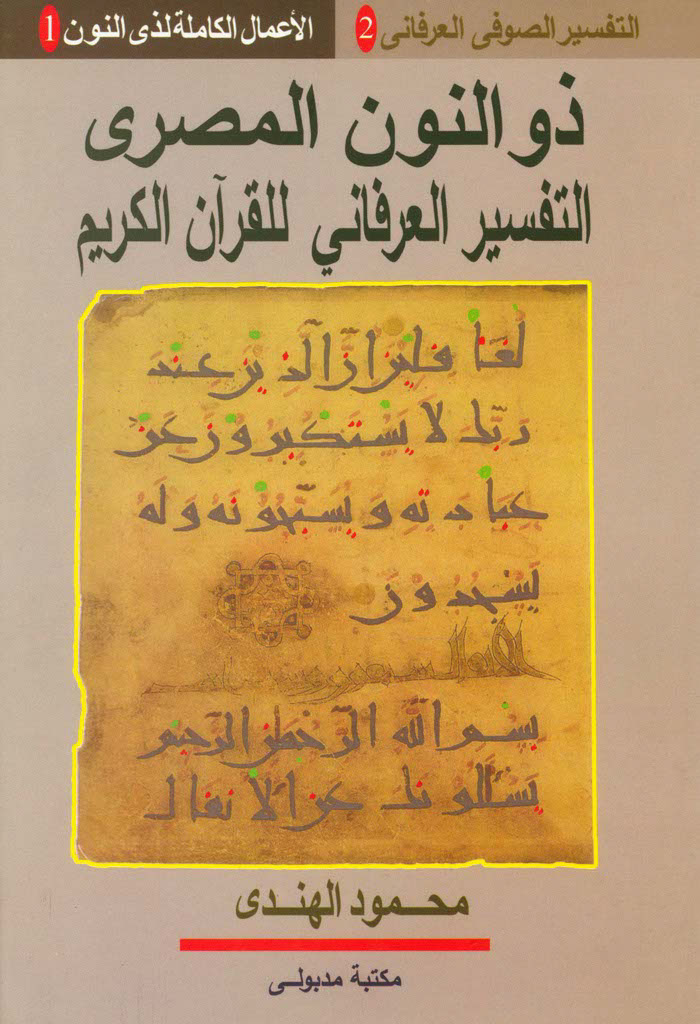 التفسير الصوفى العرفانى 2
الأعمال الكاملة لذى النون 1
ذو النون المصرى
التفسير العرفاني للقرآن الكريم
لغَا فلين ان الذين عند
ربك لا يستكبرون عن
عبادته ويسبحونه وله
يسجدون
الانفال سبعون
بسم الله الرحمن الرحيم
يسئلونك عن الانفال
محمود الهندى
مكتبة مدبولى